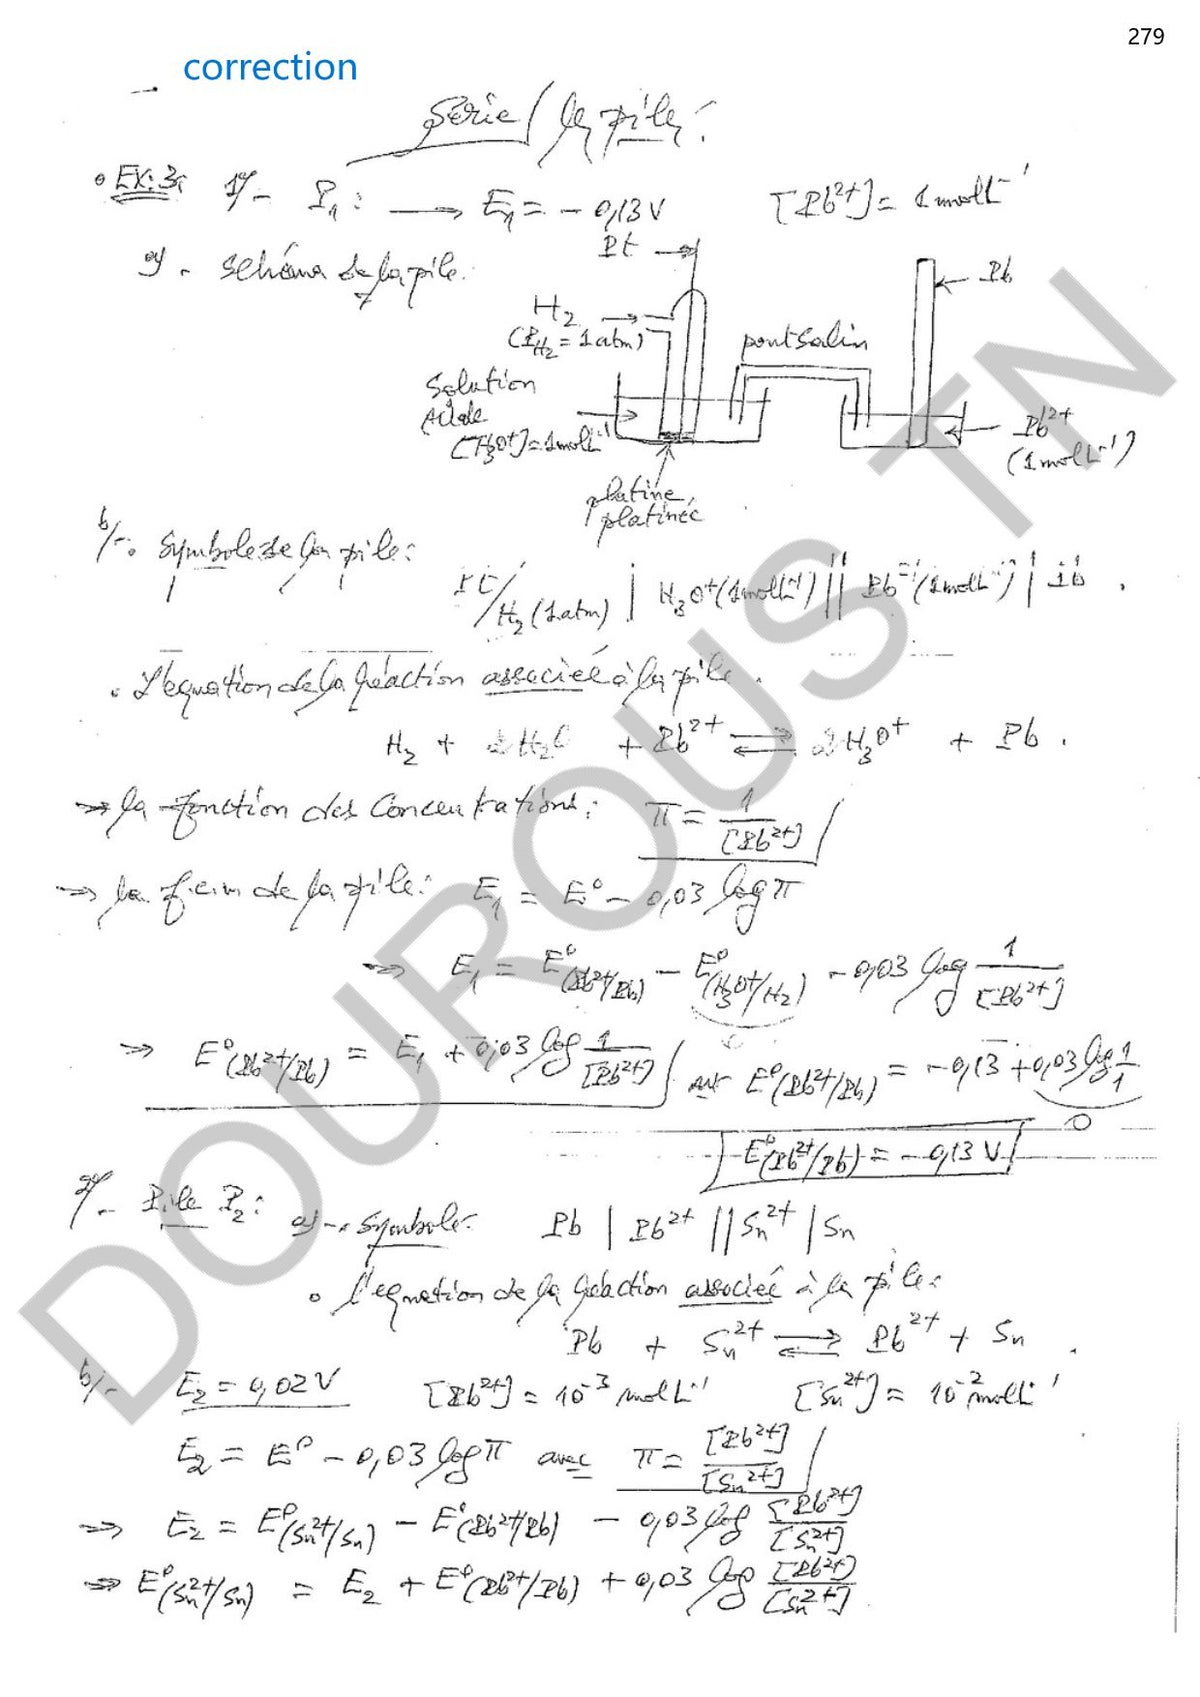 279
correction
Série / les piles :
• Ex: 3: 1°/- P₁ : → E₁ = - 0,13 V [Pb²⁺] = 1 mol L⁻¹
a/ - Schéma de la pile.
Pt →
← Pb
H₂ →
(P_H₂ = 1 atm)
pont salin
Solution
Acide
[H₃O⁺] = 1 mol L⁻¹
Pb²⁺
(1 mol L⁻¹)
platine
platinée
b/-. Symbole de la pile :
Pt/H₂ (1 atm) | H₃O⁺ (1 mol L⁻¹) || Pb²⁺ (1 mol L⁻¹) | Pb .
• L'equation de la réaction associeé à la pile .
H₂ + 2 H₂O + Pb²⁺ ⇌ 2 H₃O⁺ + Pb .
⇒ la fonction des Concentrations : π = 1/[Pb²⁺]
⇒ la f.e.m de la pile : E₁ = E° - 0,03 log π
⇒ E₁ = E°(Pb²⁺/Pb) - E°(H₃O⁺/H₂) - 0,03 log 1/[Pb²⁺]
0
⇒ E°(Pb²⁺/Pb) = E₁ + 0,03 log 1/[Pb²⁺] E°(Pb²⁺/Pb) = - 0,13 + 0,03 log 1/1
0
E°(Pb²⁺/Pb) = - 0,13 V
2°/- Pile P₂ : a/-. Symbole: Pb | Pb²⁺ || Sn²⁺ | Sn
• l'equation de la réaction associeé à la pile :
Pb + Sn²⁺ ⇌ Pb²⁺ + Sn .
b/- E₂ = 0,02 V [Pb²⁺] = 10⁻³ mol L⁻¹ [Sn²⁺] = 10⁻² mol L⁻¹
E₂ = E° - 0,03 log π avec π = [Pb²⁺]/[Sn²⁺]
⇒ E₂ = E°(Sn²⁺/Sn) - E°(Pb²⁺/Pb) - 0,03 log [Pb²⁺]/[Sn²⁺]
⇒ E°(Sn²⁺/Sn) = E₂ + E°(Pb²⁺/Pb) + 0,03 log [Pb²⁺]/[Sn²⁺]
DOUROUS TN